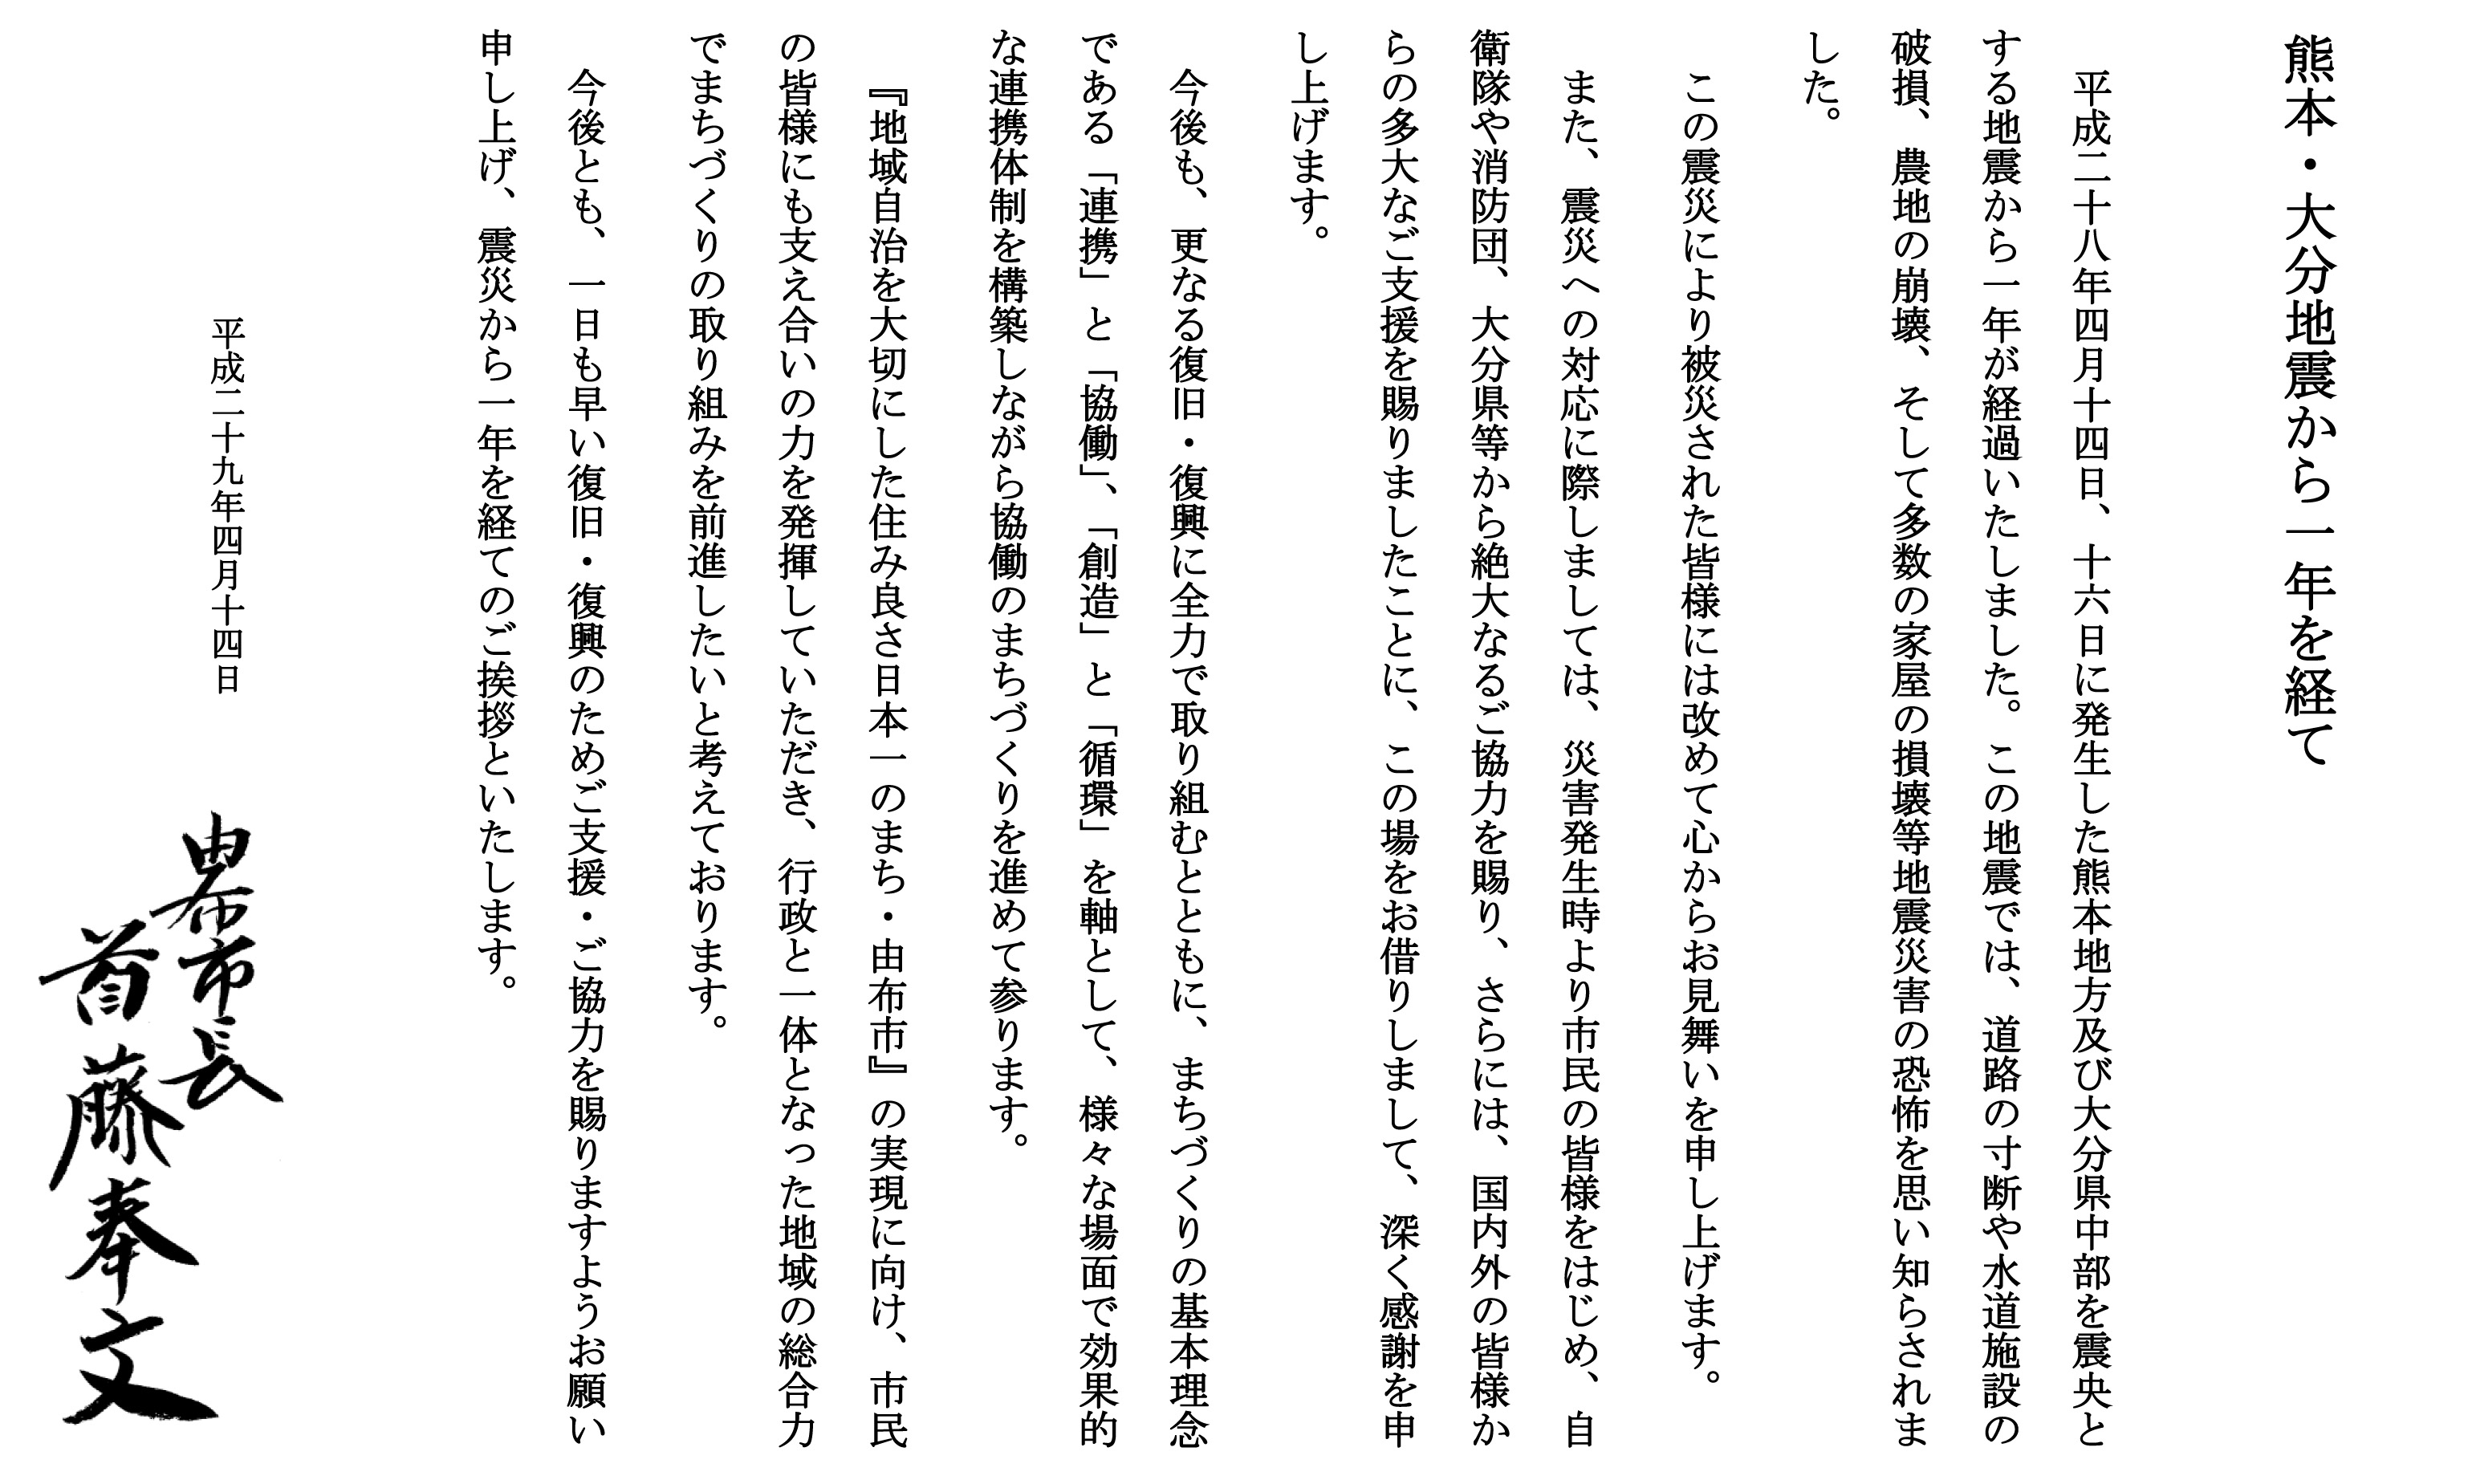 熊本・大分地震から一年を経て
平成二十八年四月十四日、十六日に発生した熊本地方及び大分県中部を震央と
する地震から一年が経過いたしました。この地震では、道路の寸断や水道施設の
破損、農地の崩壊、そして多数の家屋の損壊等地震災害の恐怖を思い知らされま
した。
この震災により被災された皆様には改めて心からお見舞いを申し上げます。
また、震災への対応に際しましては、災害発生時より市民の皆様をはじめ、自
衛隊や消防団、大分県等から絶大なるご協力を賜り、さらには、国内外の皆様か
らの多大なご支援を賜りましたことに、この場をお借りしまして、深く感謝を申
し上げます。
今後も、更なる復旧・復興に全力で取り組むとともに、まちづくりの基本理念
である「連携」と「協働」、「創造」と「循環」を軸として、様々な場面で効果的
な連携体制を構築しながら協働のまちづくりを進めて参ります。
『地域自治を大切にした住み良さ日本一のまち・由布市』の実現に向け、市民
の皆様にも支え合いの力を発揮していただき、行政と一体となった地域の総合力
でまちづくりの取り組みを前進したいと考えております。
今後とも、一日も早い復旧・復興のためご支援・ご協力を賜りますようお願い
申し上げ、震災から一年を経てのご挨拶といたします。
平成二十九年四月十四日
由布市長
首藤奉文